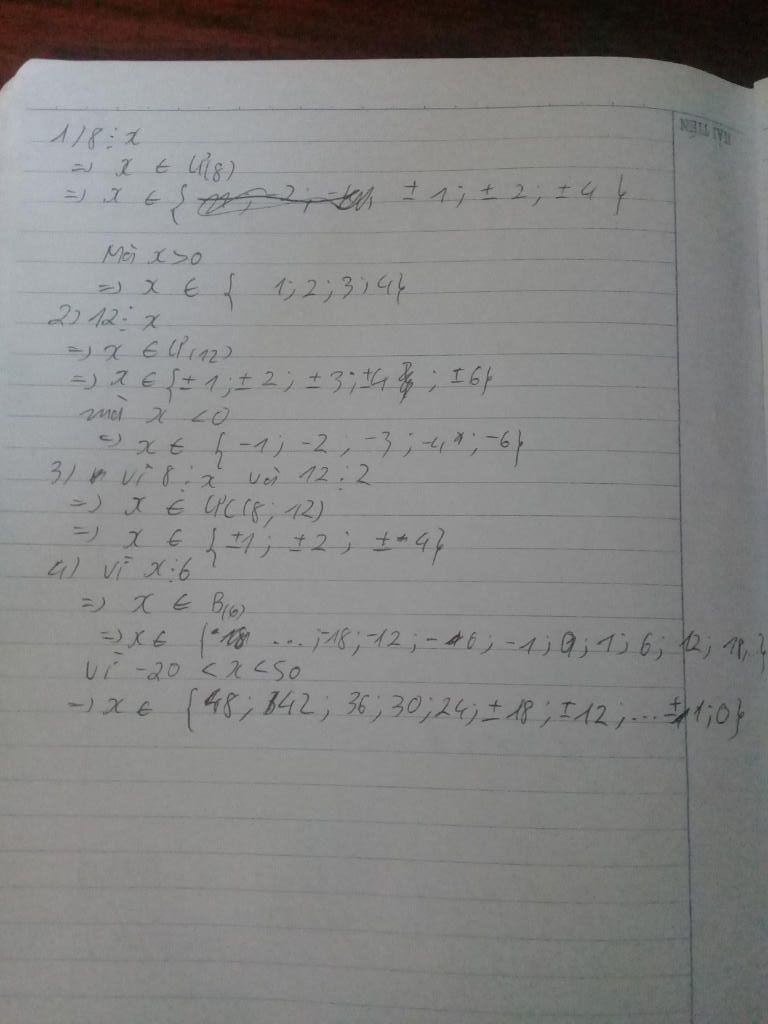 HẢI TIẾN
1) 8 ⋮ x
=> x ∈ Ư(8)
=> x ∈ { ± 1 ; ± 2 ; ± 4 }
Mà x > 0
=> x ∈ { 1 ; 2 ; 3 ; 4 }
2) 12 ⋮ x
=> x ∈ Ư(12)
=> x ∈ { ± 1 ; ± 2 ; ± 3 ; ± 4 ; ± 6 }
mà x < 0
=> x ∈ { -1 ; -2 ; -3 ; -4 ; -6 }
3) vì 8 ⋮ x và 12 ⋮ 2
=> x ∈ ƯC(8 ; 12)
=> x ∈ { ±1 ; ±2 ; ± 4 }
4) vì x ⋮ 6
=> x ∈ B(6)
=> x ∈ { ... ; -18 ; -12 ; -6 ; -1 ; 0 ; 1 ; 6 ; 12 ; 18, }
vì -20 < x < 50
=> x ∈ { 48 ; 42 ; 36 ; 30 ; 24 ; ± 18 ; ± 12 ; ... ± 1 ; 0 }